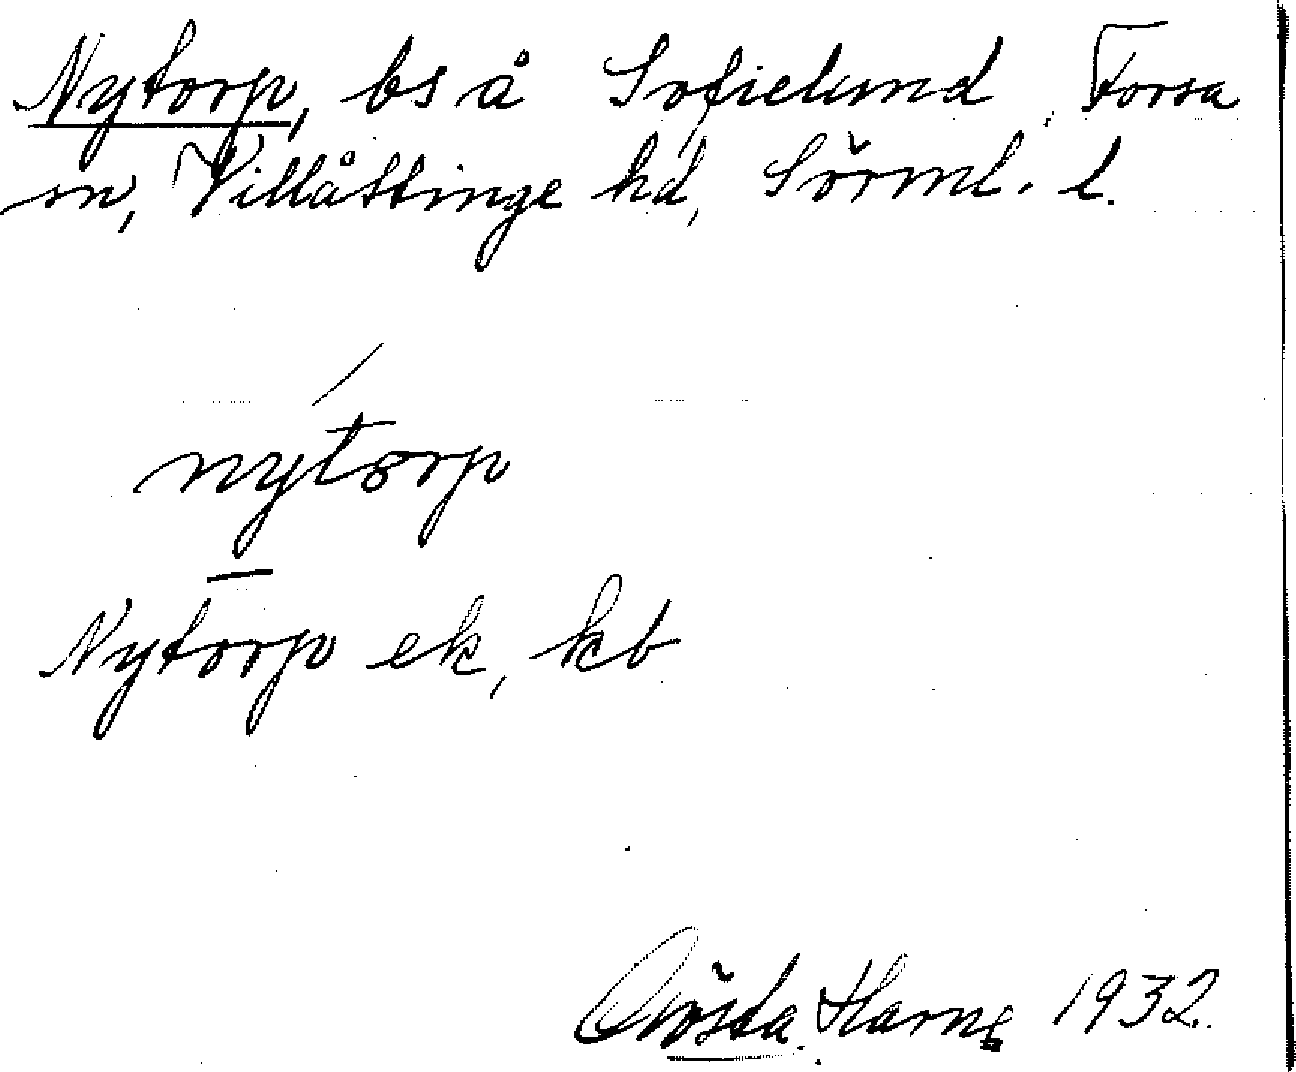 Nytorp, bs å Sofielund, Forsa
sn, Villåttinge hd, Sörml. l.
nytorp
Nytorp ek, kb
Gösta Harng 1932.